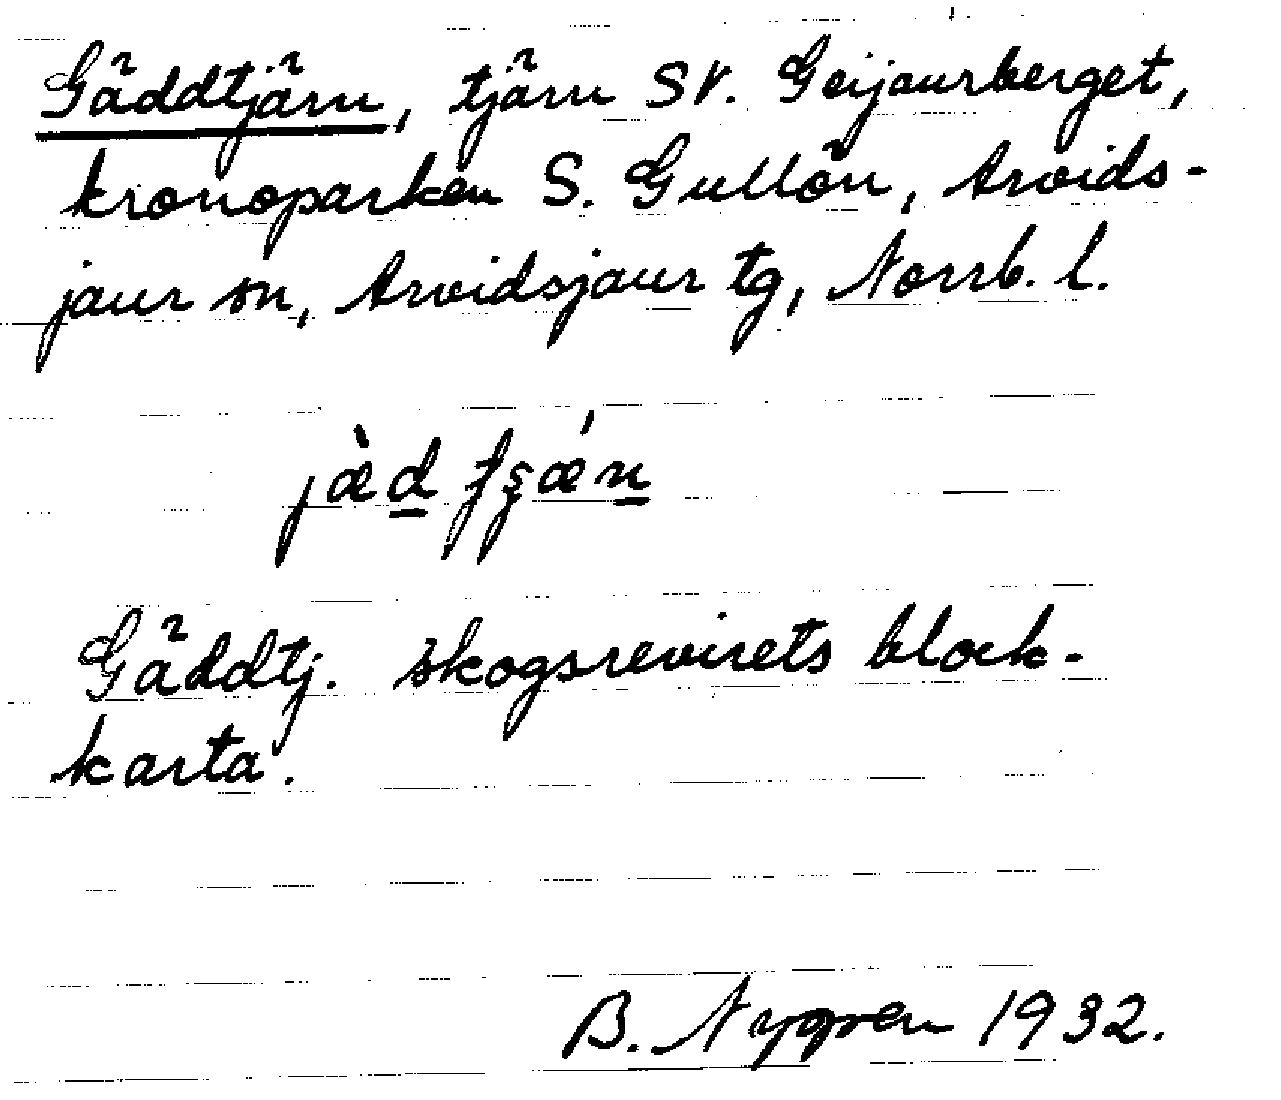 Gäddtjärn, tjärn SV. Geijaurberget,
kronoparken S. Gullön, Arvids-
jaur sn, Arvidsjaur tg, Norrb. l.
jæ̀d̲ tʂǽn̲
Gäddtj. skogsrevirets block-
karta.
B. Nygren 1932.